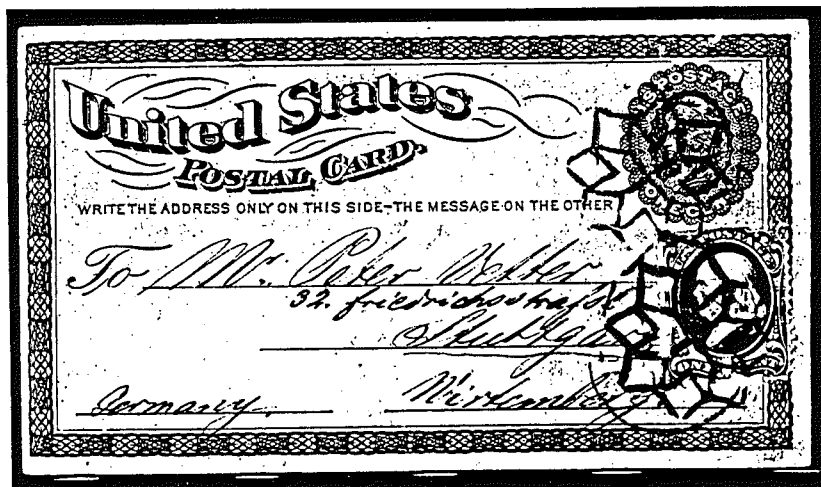 United States
POSTAL CARD.
WRITE THE ADDRESS ONLY ON THIS SIDE-THE MESSAGE ON THE OTHER
To Mr. Peter Vetter
32. friedrichsstrasse
Stuttgart
Germany. Wirtemberg
POSTAGE